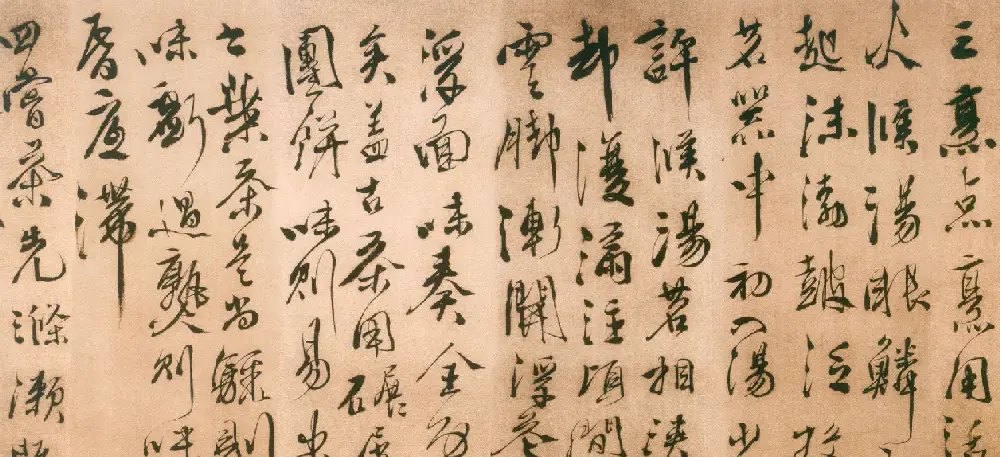 三烹点烹用活
火候湯眼鱗
起沫浡皷泛投
茗器中初入湯少
許候湯茗相浹
却復滿注頃間
雲脚漸開浮花
浮面味奏全功
矣盖古茶用碾屑
團餅味則易出
今葉茶是尚驟則
味虧過熟則味
昏底滯
四嘗茶先滌漱既